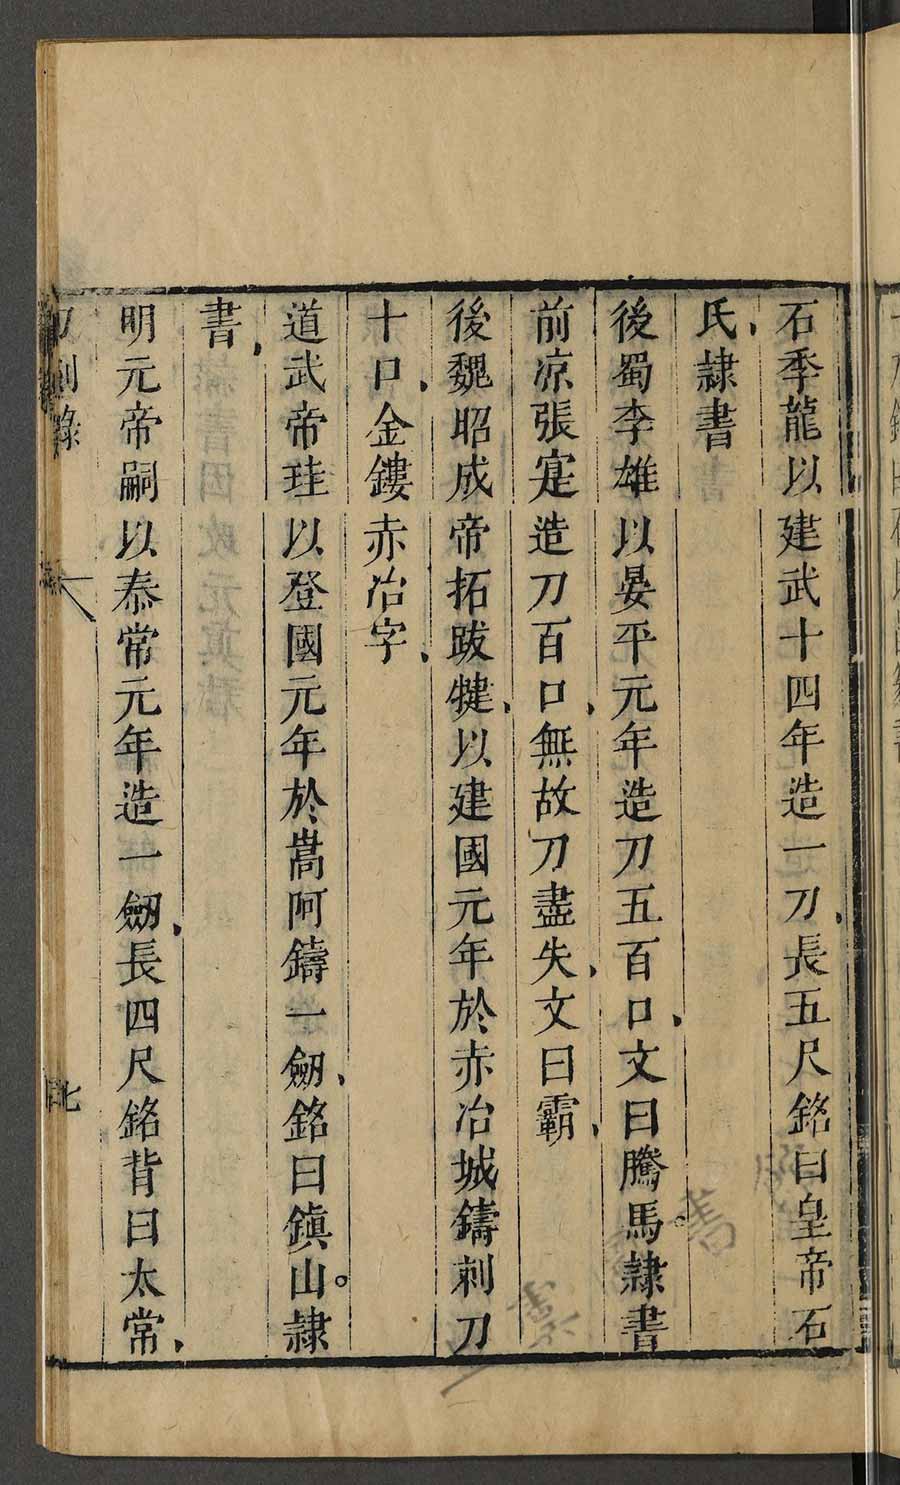 石季龍以建武十四年造一刀長五尺銘曰皇帝石
氏隷書
後蜀李雄以晏平元年造刀五百口文曰騰馬隷書
前凉張寔造刀百口無故刀盡失文曰霸
後魏昭成帝拓跋犍以建國元年於赤冶城鑄刺刀
十口金鏤赤冶字
道武帝珪以登國元年於嵩阿鑄一劒銘曰鎮山隷
書
明元帝嗣以泰常元年造一劒長四尺銘背曰太常
刀劍錄